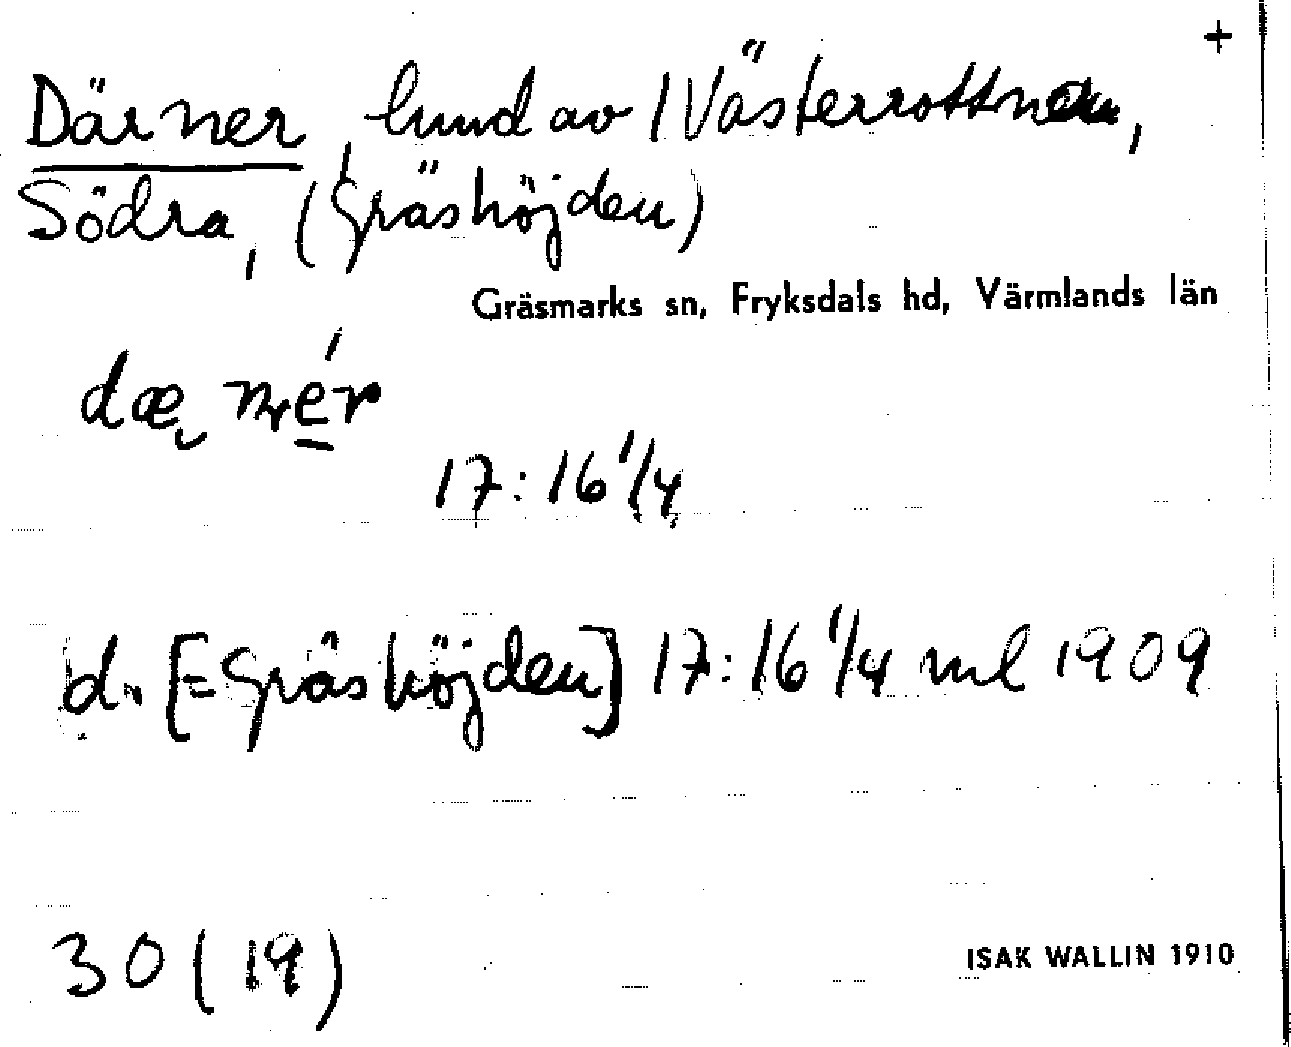 +
Därner, lund av 1 Västerrottnen,
Södra, (Gräshöjden)
Gräsmarks sn, Fryksdals hd, Värmlands län
dæ nér
17:16 1/4
d. [=Gräshöjden] 17:16 1/4 ml 1909
30 (19)
ISAK WALLIN 1910